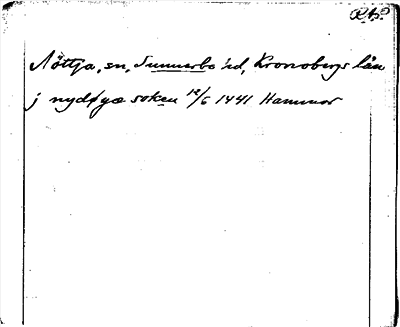 RAp?
Nöttja, sn, Sunnerbo hd, Kronobergs län
j nydøgæ soken 12/6 1441 Hammor